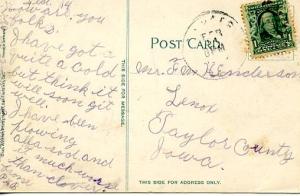 are, you
folks.
I have got
quite a cold
but think it
will soon get
well.
I have been
plowing
alfa-sod and
much worse
than clover
THIS SIDE FOR MESSAGE.
POST CARD
FEB
Henderson
Lenox
Taylor County
Iowa.
THIS SIDE FOR ADDRESS ONLY.